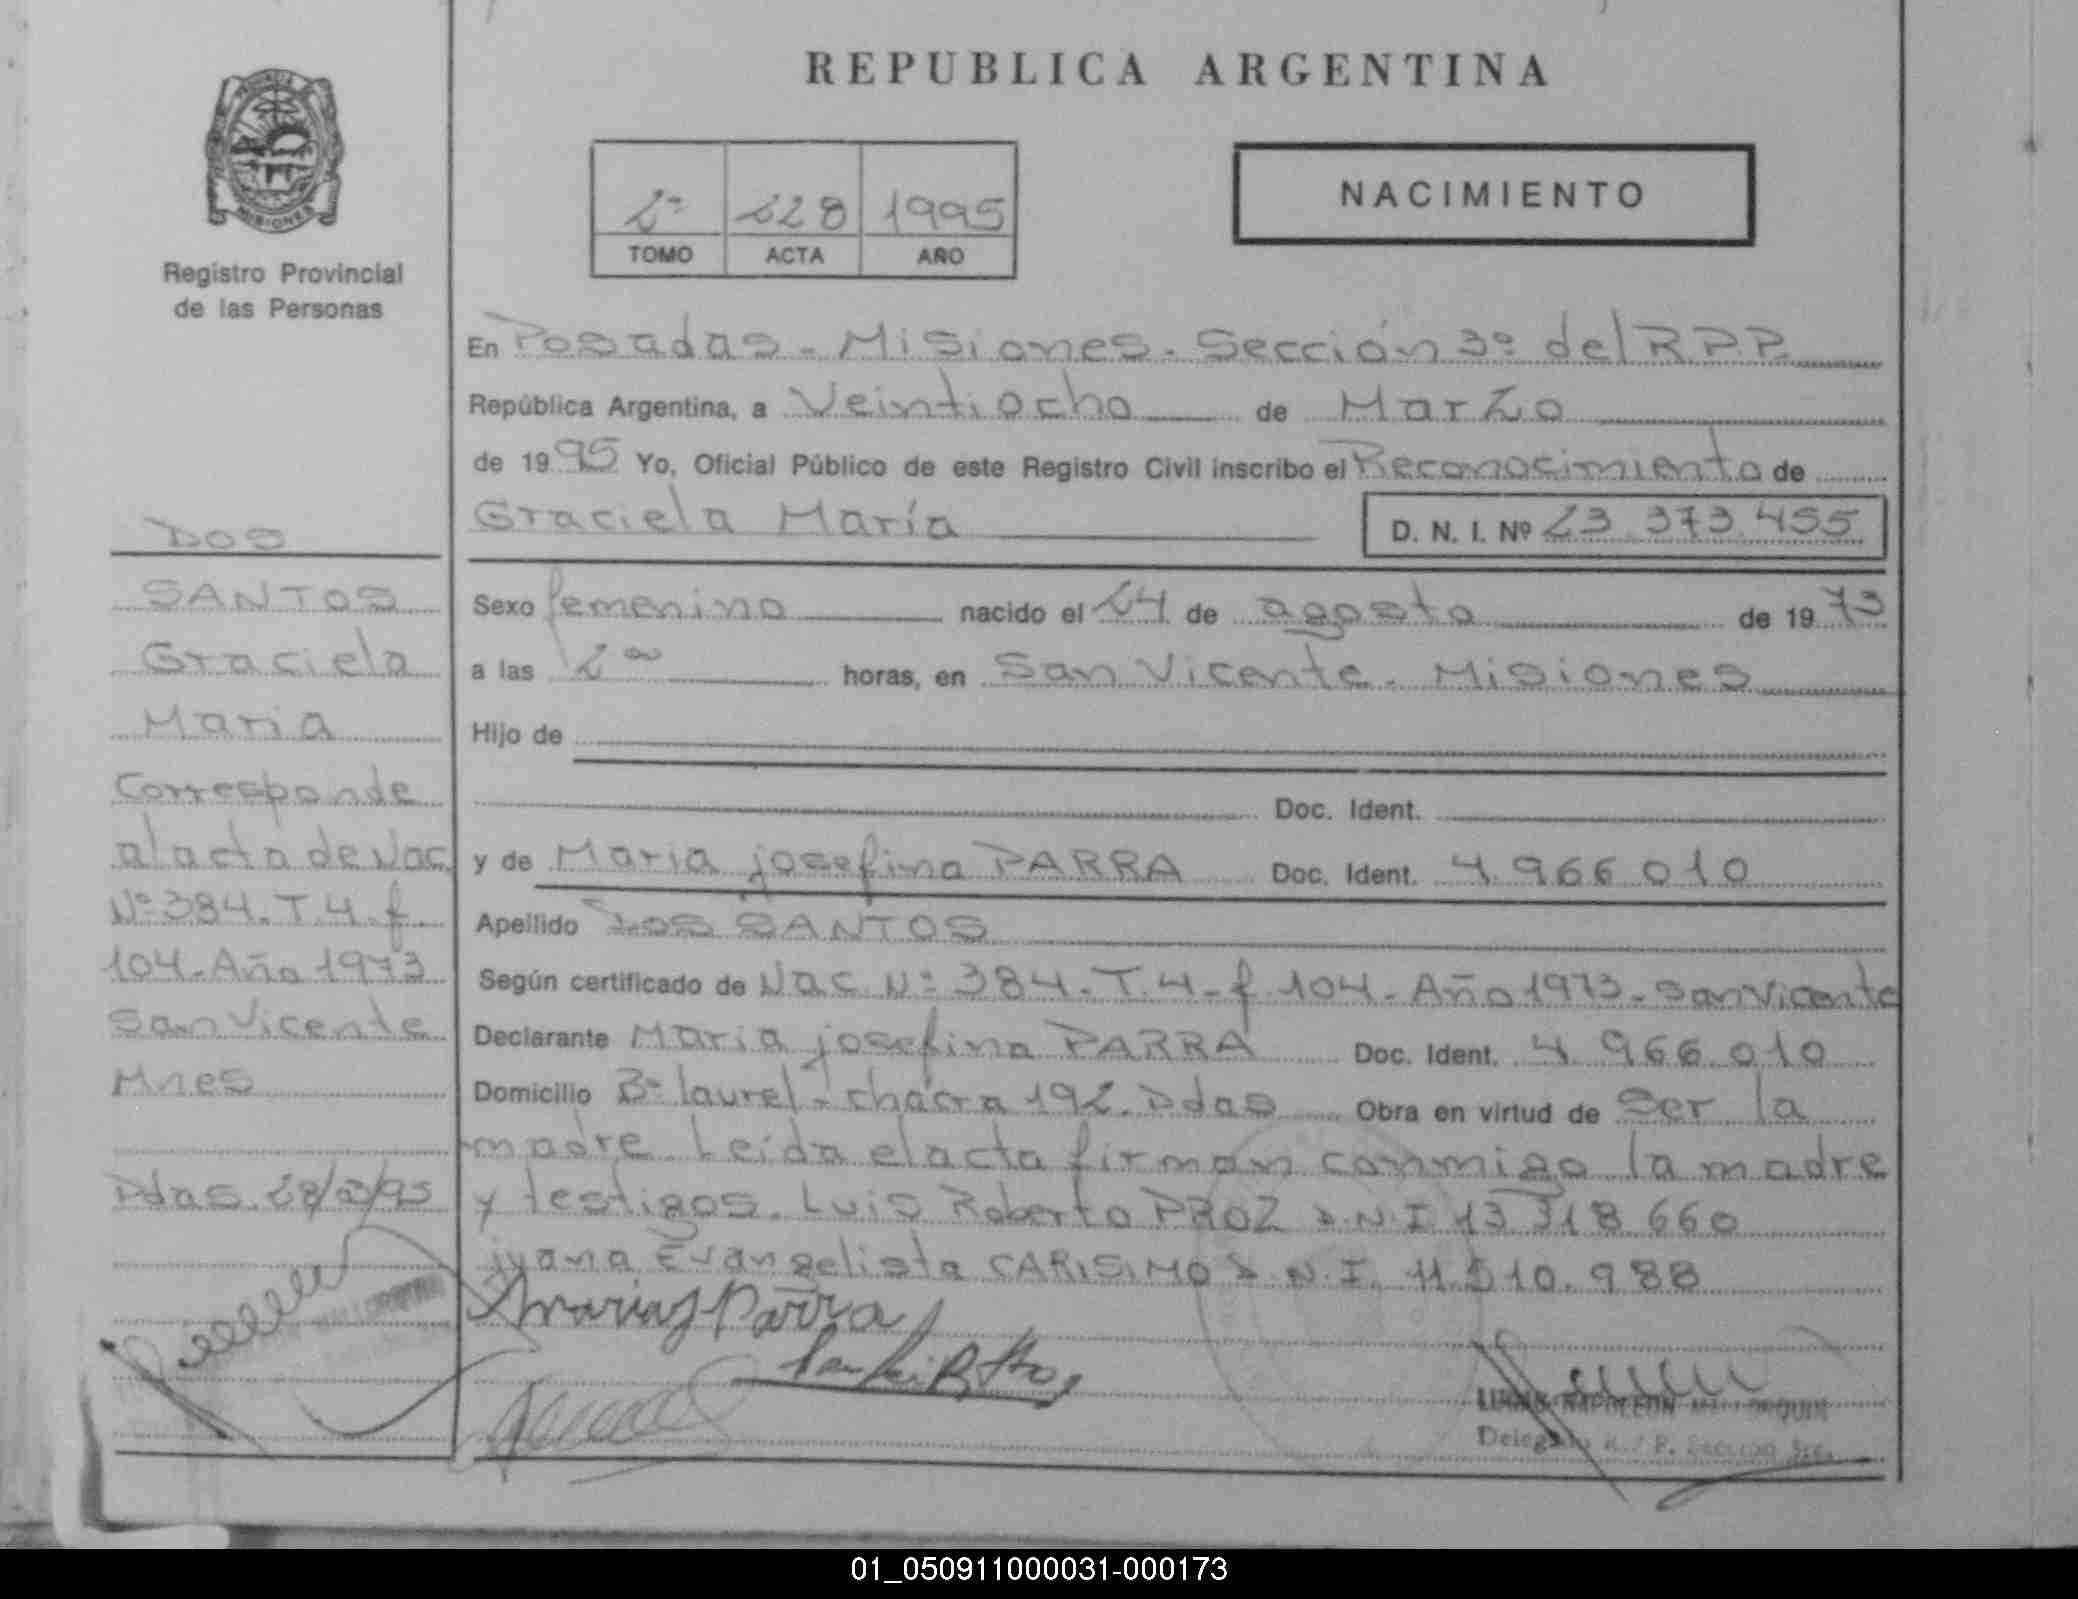 REPUBLICA ARGENTINA
NACIMIENTO
2º 228 1995
TOMO ACTA AÑO
PROVINCIA DE MISIONES
Registro Provincial
de las Personas
En Posadas - Misiones - Sección 3º del R.P.P.
República Argentina, a Veintiocho de Marzo
de 1995 Yo, Oficial Público de este Registro Civil inscribo el Reconocimiento de
Graciela María D. N. I. Nº 23.373.455
Sexo femenino nacido el 24 de agosto de 1973
a las 2 00 horas, en San Vicente - Misiones
Hijo de
Doc. Ident.
y de Maria josefina PARRA Doc. Ident. 4.966.010
Apellido DOS SANTOS
Según certificado de Nac Nº 384. T. 4 - f 104 - Año 1973 - San Vicente
Declarante Maria josefina PARRA Doc. Ident. 4.966.010
Domicilio Bº laurel - chacra 192. Pdas Obra en virtud de Ser la
madre. Leida el acta firman conmigo la madre
y testigos. Luis Roberto PROZ D.N.I 13 318 660
juana Evangelista CARISIMO D.N.I. 11.510.988
Maria J Parra
NAPOLEON MALLORQUIN
Delegado R.P.P. Seccion 3ra.
DOS
SANTOS
Graciela
Maria
Corresponde
al acta de Nac
Nº 384. T. 4. f.
104. Año 1973
San Vicente
Mnes
Pdas. 28/3/95
01_050911000031-000173